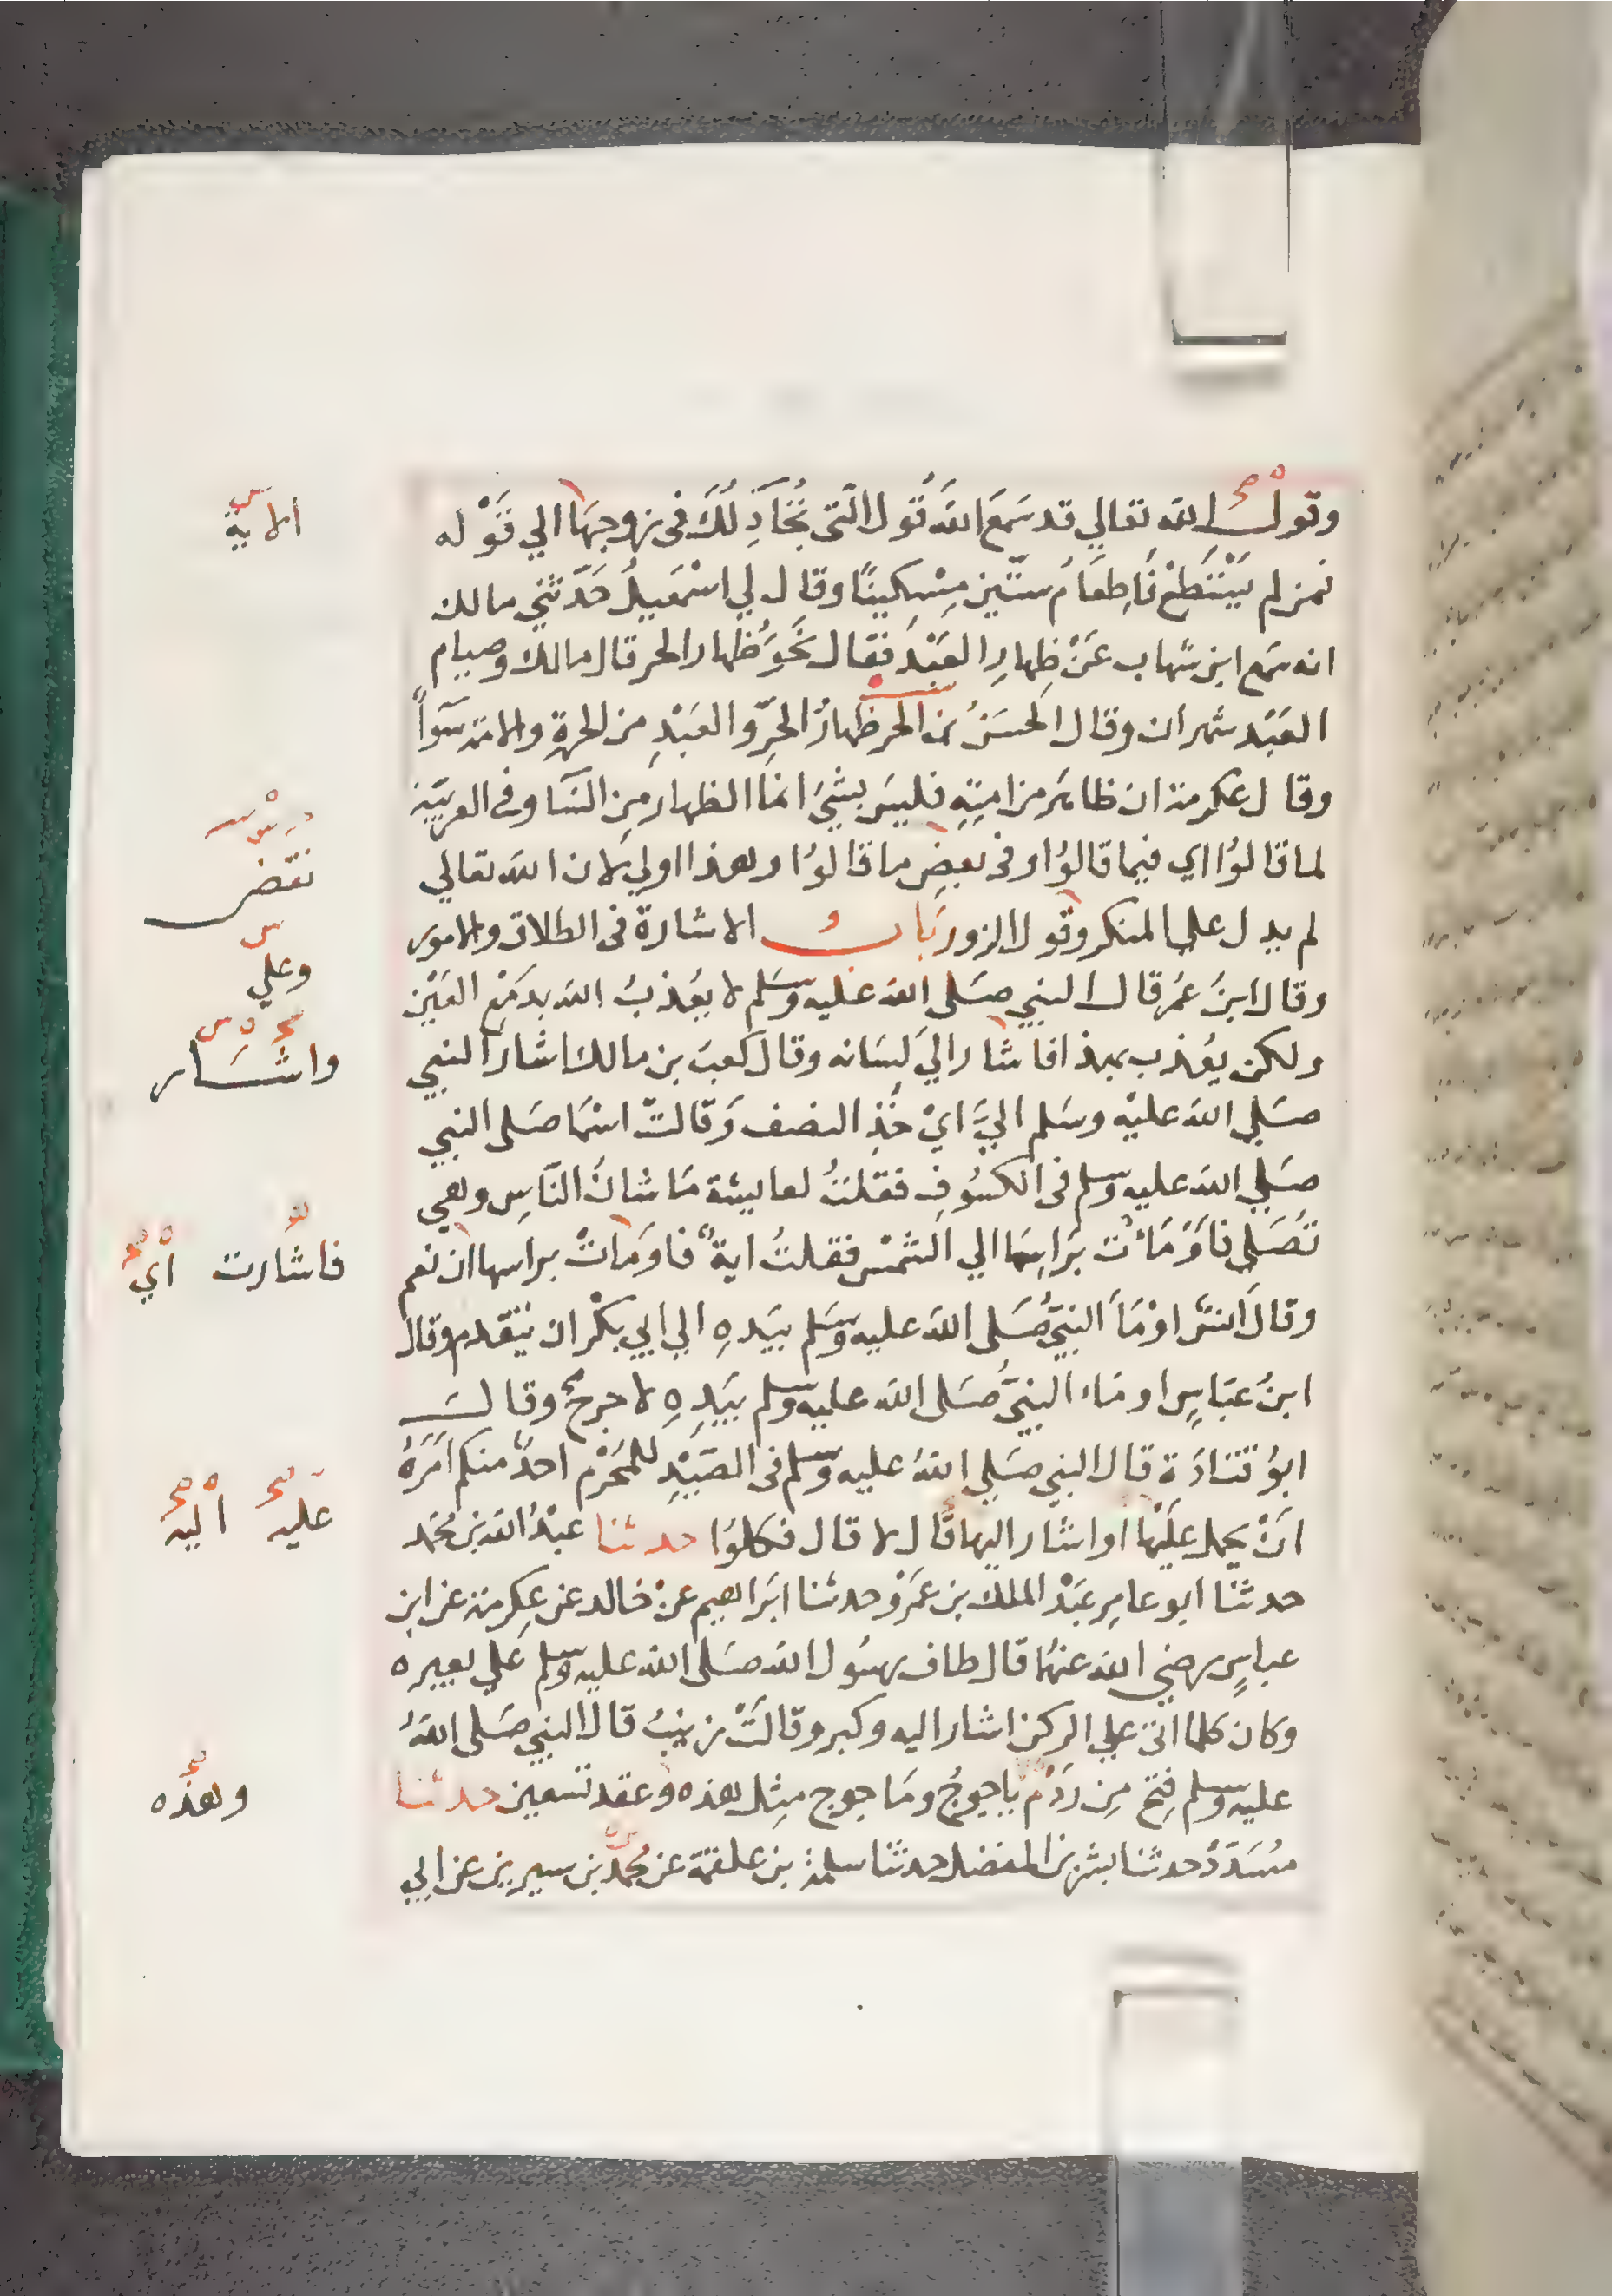 وقول الله تعالي قد سَمَع اللهَ قُول الّتي تُجَادِلُكَ في زوجِهَا الي قَوْله
فمن لم يَسْتَطعْ فَاِطعَامُ ستّين مِسْكِينًا وقال لي اسْمعيلُ حَدّثني مالك
انه سَمع ابن شهاب عَنْ ظِهارِ العَبْدِ فقال نَحوُ ظهار الحر قال مالك وصيام
العَبْد شهران وقال الحسَنُ بن الحر ظهارُ الحرِّ والعَبْدِ من الحرةِ والامة سَوآءً
وقال عكرمة ان ظاهَرَ من امتِهِ فليسَ بشيءَ انما الظهار مِن النسَاء وفي العربيّة
لما قالوُا اي فيما قالوُا وفي بعضِ ما قالوُا وهذا اولي لان الله تعالي
لم يدل علي المنكر وقول الزور بَابُ الاشارة في الطلاق والامور
وقال ابنُ عمُر قال النبي صَلى الله عَليه وسَلم لا يعُذبُ الله بدَمْع العَيْن
ولكن يعُذب بهذا فاشار الي لِسَانه وقال كعبَ بن مالك اشار النبي
صَلي الله عليْه وسَلم اليَّ ايْ خُذِ النصف وَقالتْ اسْمَا صَلى النبي
صَلي الله عليه وسلم في الكسُوفِ فقلتُ لعايشة مَا شانُ النّاسِ وهي
تُصَلي فاَوْمَأت بَرَاسِهَا الي الشمْس فقلتُ ايةٌ فاومَاتْ براسها ان نعم
وقال انسٌ اوْمَأ النبيُّ صَلى الله عليه وسَلم بيَدهِ الي ابي بكْر ان يتقدم وقال
ابنُ عبَاسٍ اومَاء النبيُّ صَلى الله عليه وسلم بيَدِهِ لا حرجَ وقالَ
ابوُ قتادَة قال النبي صَلي اللهُ عليه وسلم في الصَيْدِ للمُحْرِم احدٌ منكم امَرَهُ
انْ يحمل علَيْهَا او اشار اليها قال لا قال فكلوُا حدثنا عبْدُ الله بن محُمَد
حدثنا ابو عامِر عبَدْ الملك بن عَمَرْو حدثنا ابَراهيم عن خالد عن عِكرمة عن ابن
عباسٍ رضي الله عنهُما قال طاف رسُول الله صَلى الله عليه وسلم علي بعيره
وكان كلما اتى علي الركن اشار اليه وكبر وقالتْ زينبُ قال النبي صَلى اللهُ
عليه وسلم فِتح مِن رَدْم ياجوجُ ومَاجوج مِثل هذه وعقد تسعين حدثنا
مسَدّدٌ حدثنا بشر بن المفضل حدثنا سلمة بن علقمة عن محُمّد بن سيرين عن ابي
الاية
نقض
وعلي
واشار
فاشارت اي
عليه اليه
وهذه